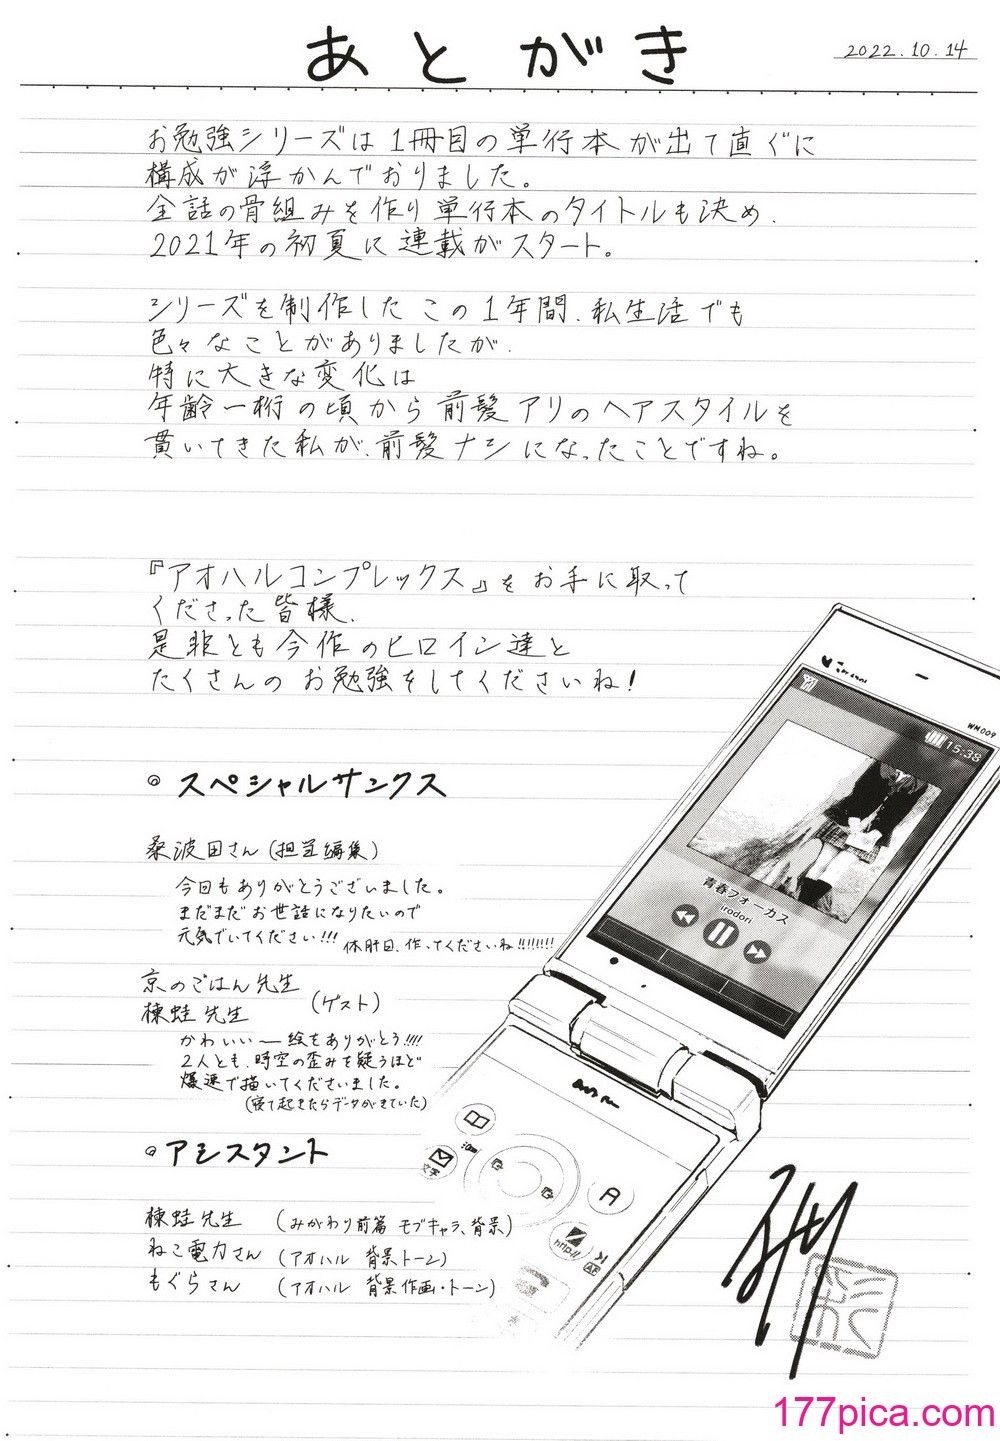 あとがき
2022.10.14
お勉強シリーズは1冊目の単行本が出て直ぐに
構成が浮かんでおりました。
全話の骨組みを作り単行本のタイトルも決め、
2021年の初夏に連載がスタート。
シリーズを制作したこの1年間、私生活でも
色々なことがありましたが、
特に大きな変化は
年齢一桁の頃から前髪アリのヘアスタイルを
貫いてきた私が、前髪ナシになったことですね。
『アオハルコンプレックス』をお手に取って
くださった皆様、
是非とも今作のヒロイン達と
たくさんのお勉強をしてくださいね!
◎スペシャルサンクス
桑波田さん(担当編集)
今回もありがとうございました。
まだまだお世話になりたいので
元気でいてください!!! 休肝日、作ってくださいね!!!!!!!!
京のごはん先生
棟蛙先生 (ゲスト)
かわいい〜絵をありがとう!!!!
2人とも、時空の歪みを疑うほど
爆速で描いてくださいました。
(寝て起きたらデータがきていた)
◎アシスタント
棟蛙先生 (みがわり前篇 モブキャラ、背景)
ねこ電力さん (アオハル 背景トーン)
もぐらさん (アオハル 背景作画・トーン)
WM009
15:38
青春フォーカス
irodori
文字
A
http://
AF
177pica.com